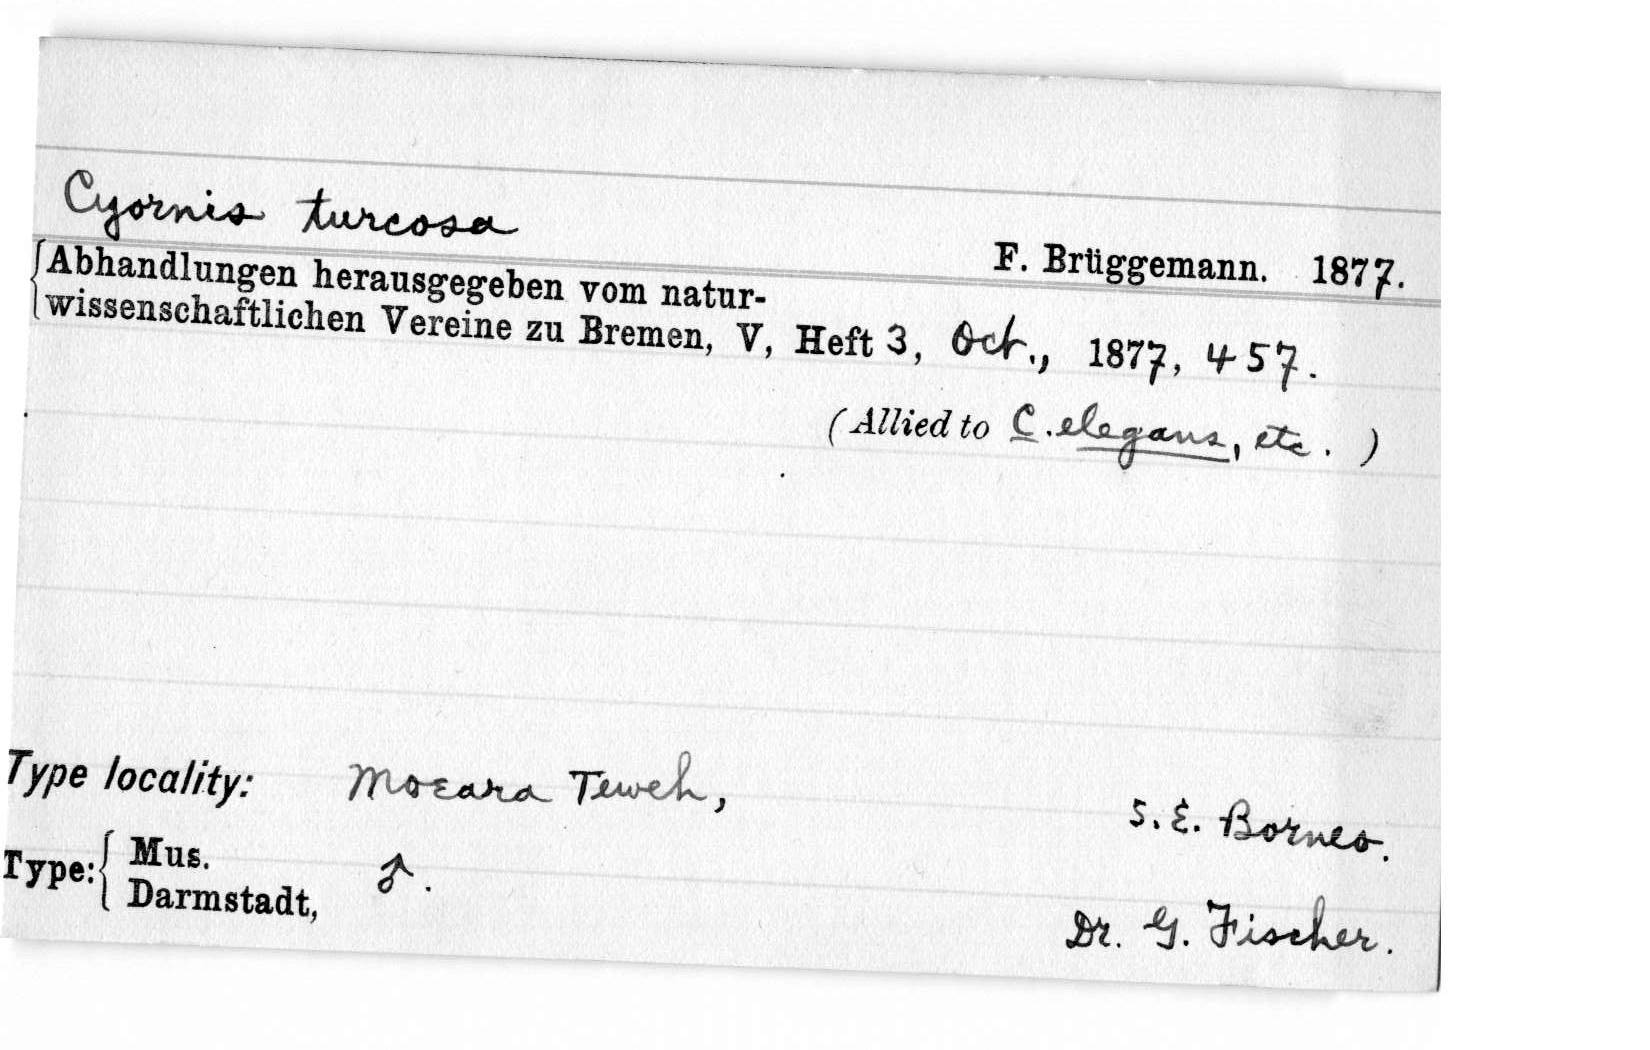 Cyornis turcosa
F. Brüggemann. 1877.
Abhandlungen herausgegeben vom natur-
wissenschaftlichen Vereine zu Bremen, V, Heft 3, Oct., 1877, 457.
(Allied to C. elegans, etc. )
Type locality: Moeara Teweh, S. E. Borneo.
Type: Mus. Darmstadt, ♂.
Dr. G. Fischer.